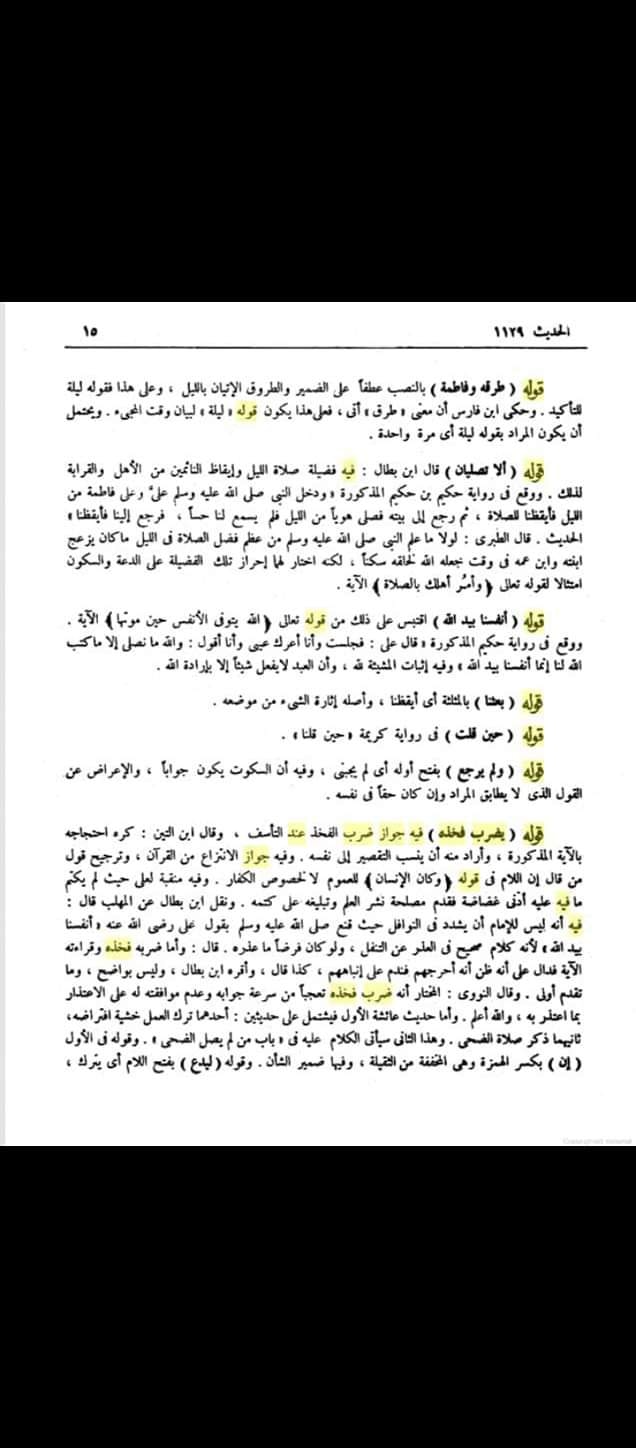 الحديث ١١٢٩
١٥
قوله ( طرقه وفاطمة ) بالنصب عطفاً على الضمير والطروق الإتيان بالليل ، وعلى هذا فقوله ليلة
للتأكيد . وحكى ابن فارس أن معنى « طرق » أتى ، فعلى هذا يكون قوله « ليلة » لبيان وقت المجىء . ويحتمل
أن يكون المراد بقوله ليلة أى مرة واحدة .
قوله ( ألا تصليان ) قال ابن بطال : فيه فضيلة صلاة الليل وإيقاظ النائمين من الأهل والقرابة
لذلك . ووقع فى رواية حكيم بن حكيم المذكورة « ودخل النبى صلى الله عليه وسلم علىَّ وعلى فاطمة من
الليل فأيقظنا للصلاة ، ثم رجع إلى بيته فصلى هوياً من الليل فلم يسمع لنا حساً ، فرجع إلينا فأيقظنا »
الحديث . قال الطبرى : لولا ما علم النبى صلى الله عليه وسلم من عظم فضل الصلاة فى الليل ماكان يزعج
ابنته وابن عمه فى وقت جعله الله لخلقه سكناً ، لكنه اختار لهما إحراز تلك الفضيلة على الدعة والسكون
امتثالا لقوله تعالى ﴿ وأمُر أهلك بالصلاة ﴾ الآية .
قوله ( أنفسنا بيد الله ) اقتبس على ذلك من قوله تعالى ﴿ الله يتوفى الأنفس حين موتها ﴾ الآية .
ووقع فى رواية حكيم المذكورة « قال على : فجلست وأنا أعرك عينى وأنا أقول : والله ما نصلى إلا ماكتب
الله لنا إنما أنفسنا بيد الله » وفيه إثبات المشيئة لله ، وأن العبد لايفعل شيئاً إلا بإرادة الله .
قوله ( بعثنا ) بالمثلثة أى أيقظنا ، وأصله إثارة الشىء من موضعه .
قوله ( حين قلت ) فى رواية كريمة « حين قلنا » .
قوله ( ولم يرجع ) بفتح أوله أى لم يجبنى ، وفيه أن السكوت يكون جواباً ، والإعراض عن
القول الذى لا يطابق المراد وإن كان حقاً فى نفسه .
قوله ( يضرب فخذه ) فيه جواز ضرب الفخذ عند التأسف ، وقال ابن التين : كره احتجاجه
بالآية المذكورة ، وأراد منه أن ينسب التقصير إلى نفسه . وفيه جواز الانتزاع من القرآن ، وترجيح قول
من قال إن اللام فى قوله ﴿ وكان الإنسان ﴾ للعموم لا لخصوص الكفار . وفيه منقبة لعلى حيث لم يكتم
ما فيه عليه أدنى غضاضة فقدم مصلحة نشر العلم وتبليغه على كتمه . ونقل ابن بطال عن المهلب قال :
فيه أنه ليس للإمام أن يشدد فى النوافل حيث قنع صلى الله عليه وسلم بقول على رضى الله عنه « أنفسنا
بيد الله » لأنه كلام صحيح فى العذر عن التنفل ، ولوكان فرضاً ما عذره . قال : وأما ضربه فخذه وقراءته
الآية فدال على أنه ظن أنه أحرجهم فندم على إنباههم ، كذا قال ، وأقره ابن بطال ، وليس بواضح ، وما
تقدم أولى . وقال النووى : المختار أنه ضرب فخذه تعجباً من سرعة جوابه وعدم موافقته له على الاعتذار
بما اعتذر به ، والله أعلم . وأما حديث عائشة الأول فيشتمل على حديثين : أحدهما ترك العمل خشية افتراضه،
ثانيهما ذكر صلاة الضحى . وهذا الثانى سيأتى الكلام عليه فى « باب من لم يصل الضحى » . وقوله فى الأول
( إن ) بكسر الهمزة وهى المخففة من الثقيلة ، وفيها ضمير الشأن . وقوله ( ليدع ) بفتح اللام أى يترك ،
Copyrighted material